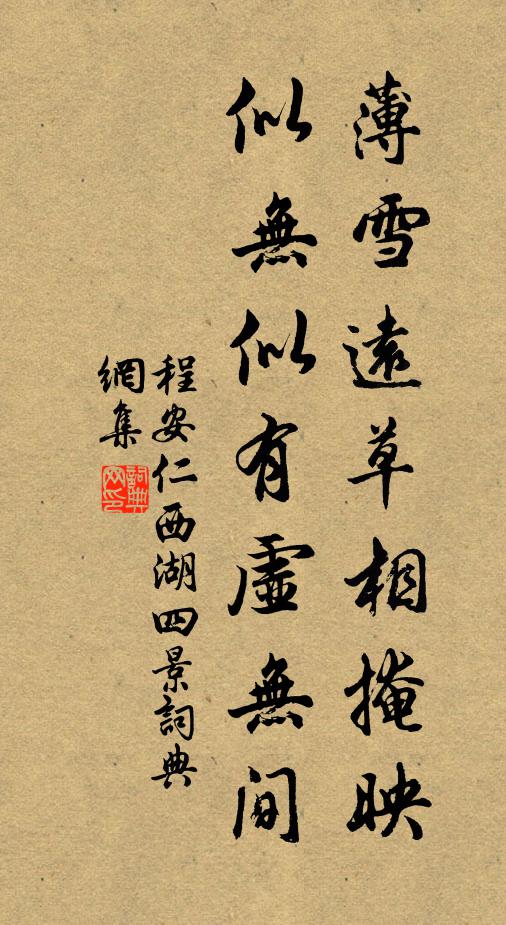 薄雪遠草相掩映
似無似有虛無間
程安仁西湖四景詞典
網集
詞典網印